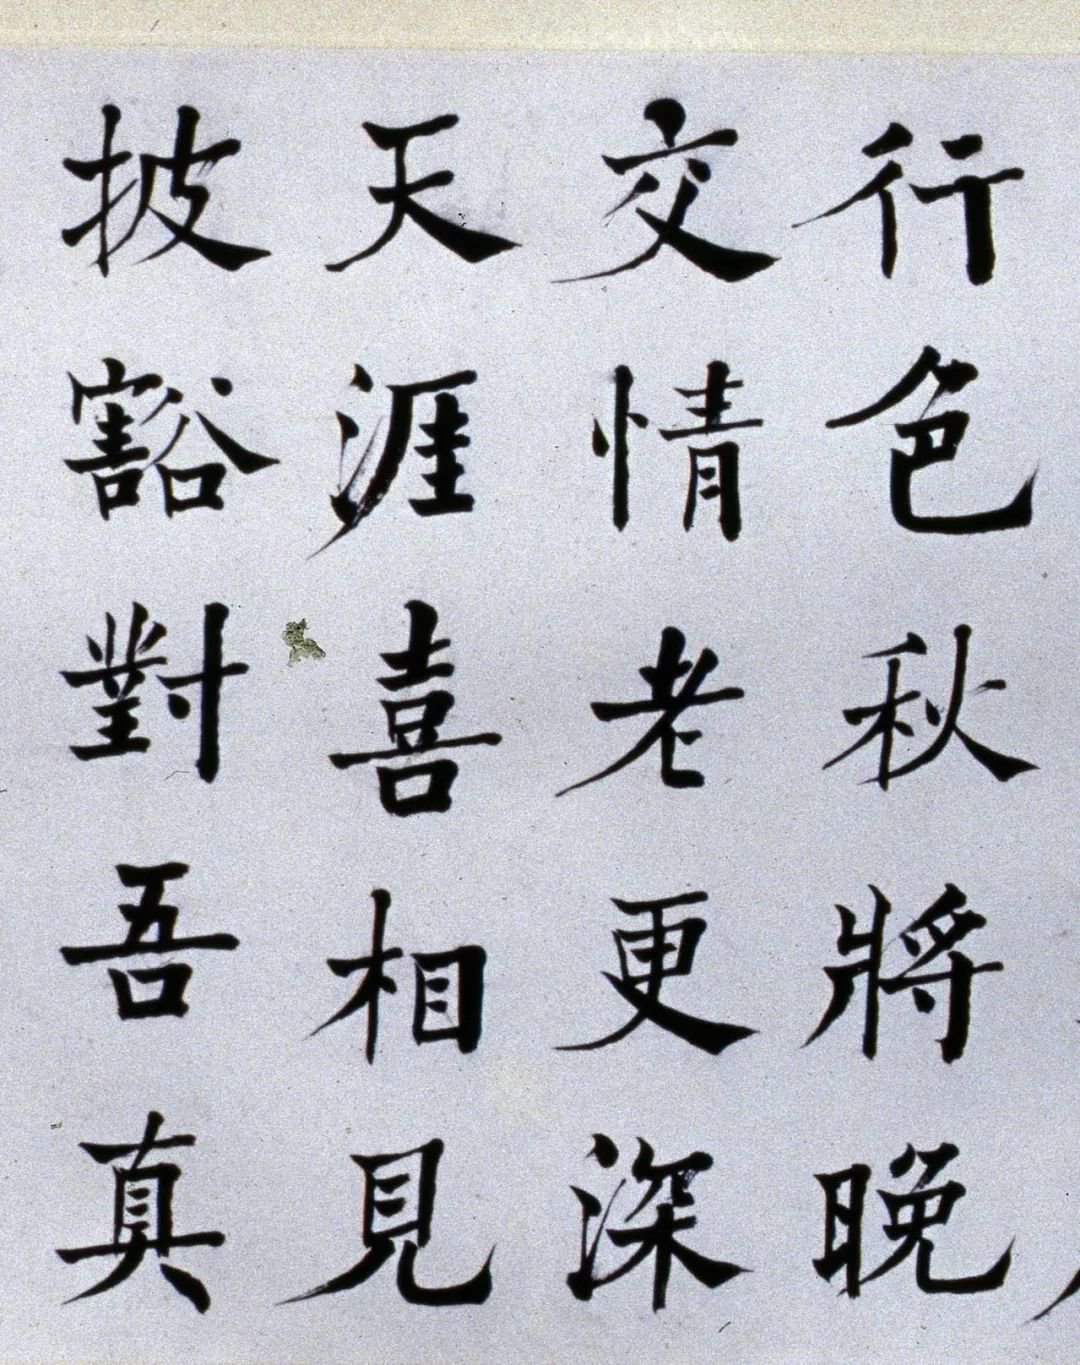 行色秋將晚
交情老更深
天涯喜相見
披豁對吾真